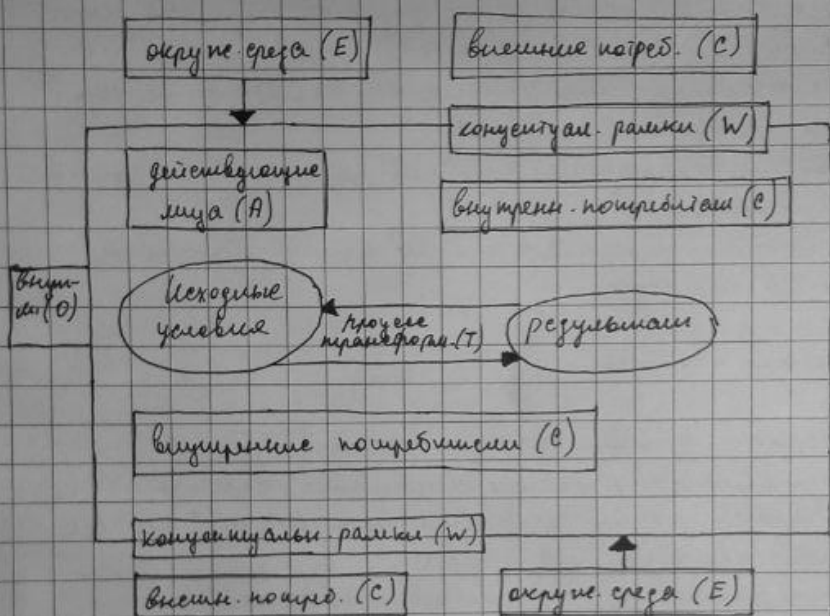 окруж. среда (E)
внешние потреб. (C)
концептуал. рамки (W)
действующие
лица (A)
внутренн. потребители (C)
(O)
Исходные
условия
процесс
трансформ. (T)
результат
внутренние потребители (C)
концептуальн. рамки (W)
внешн. потреб. (C)
окруж. среда (E)